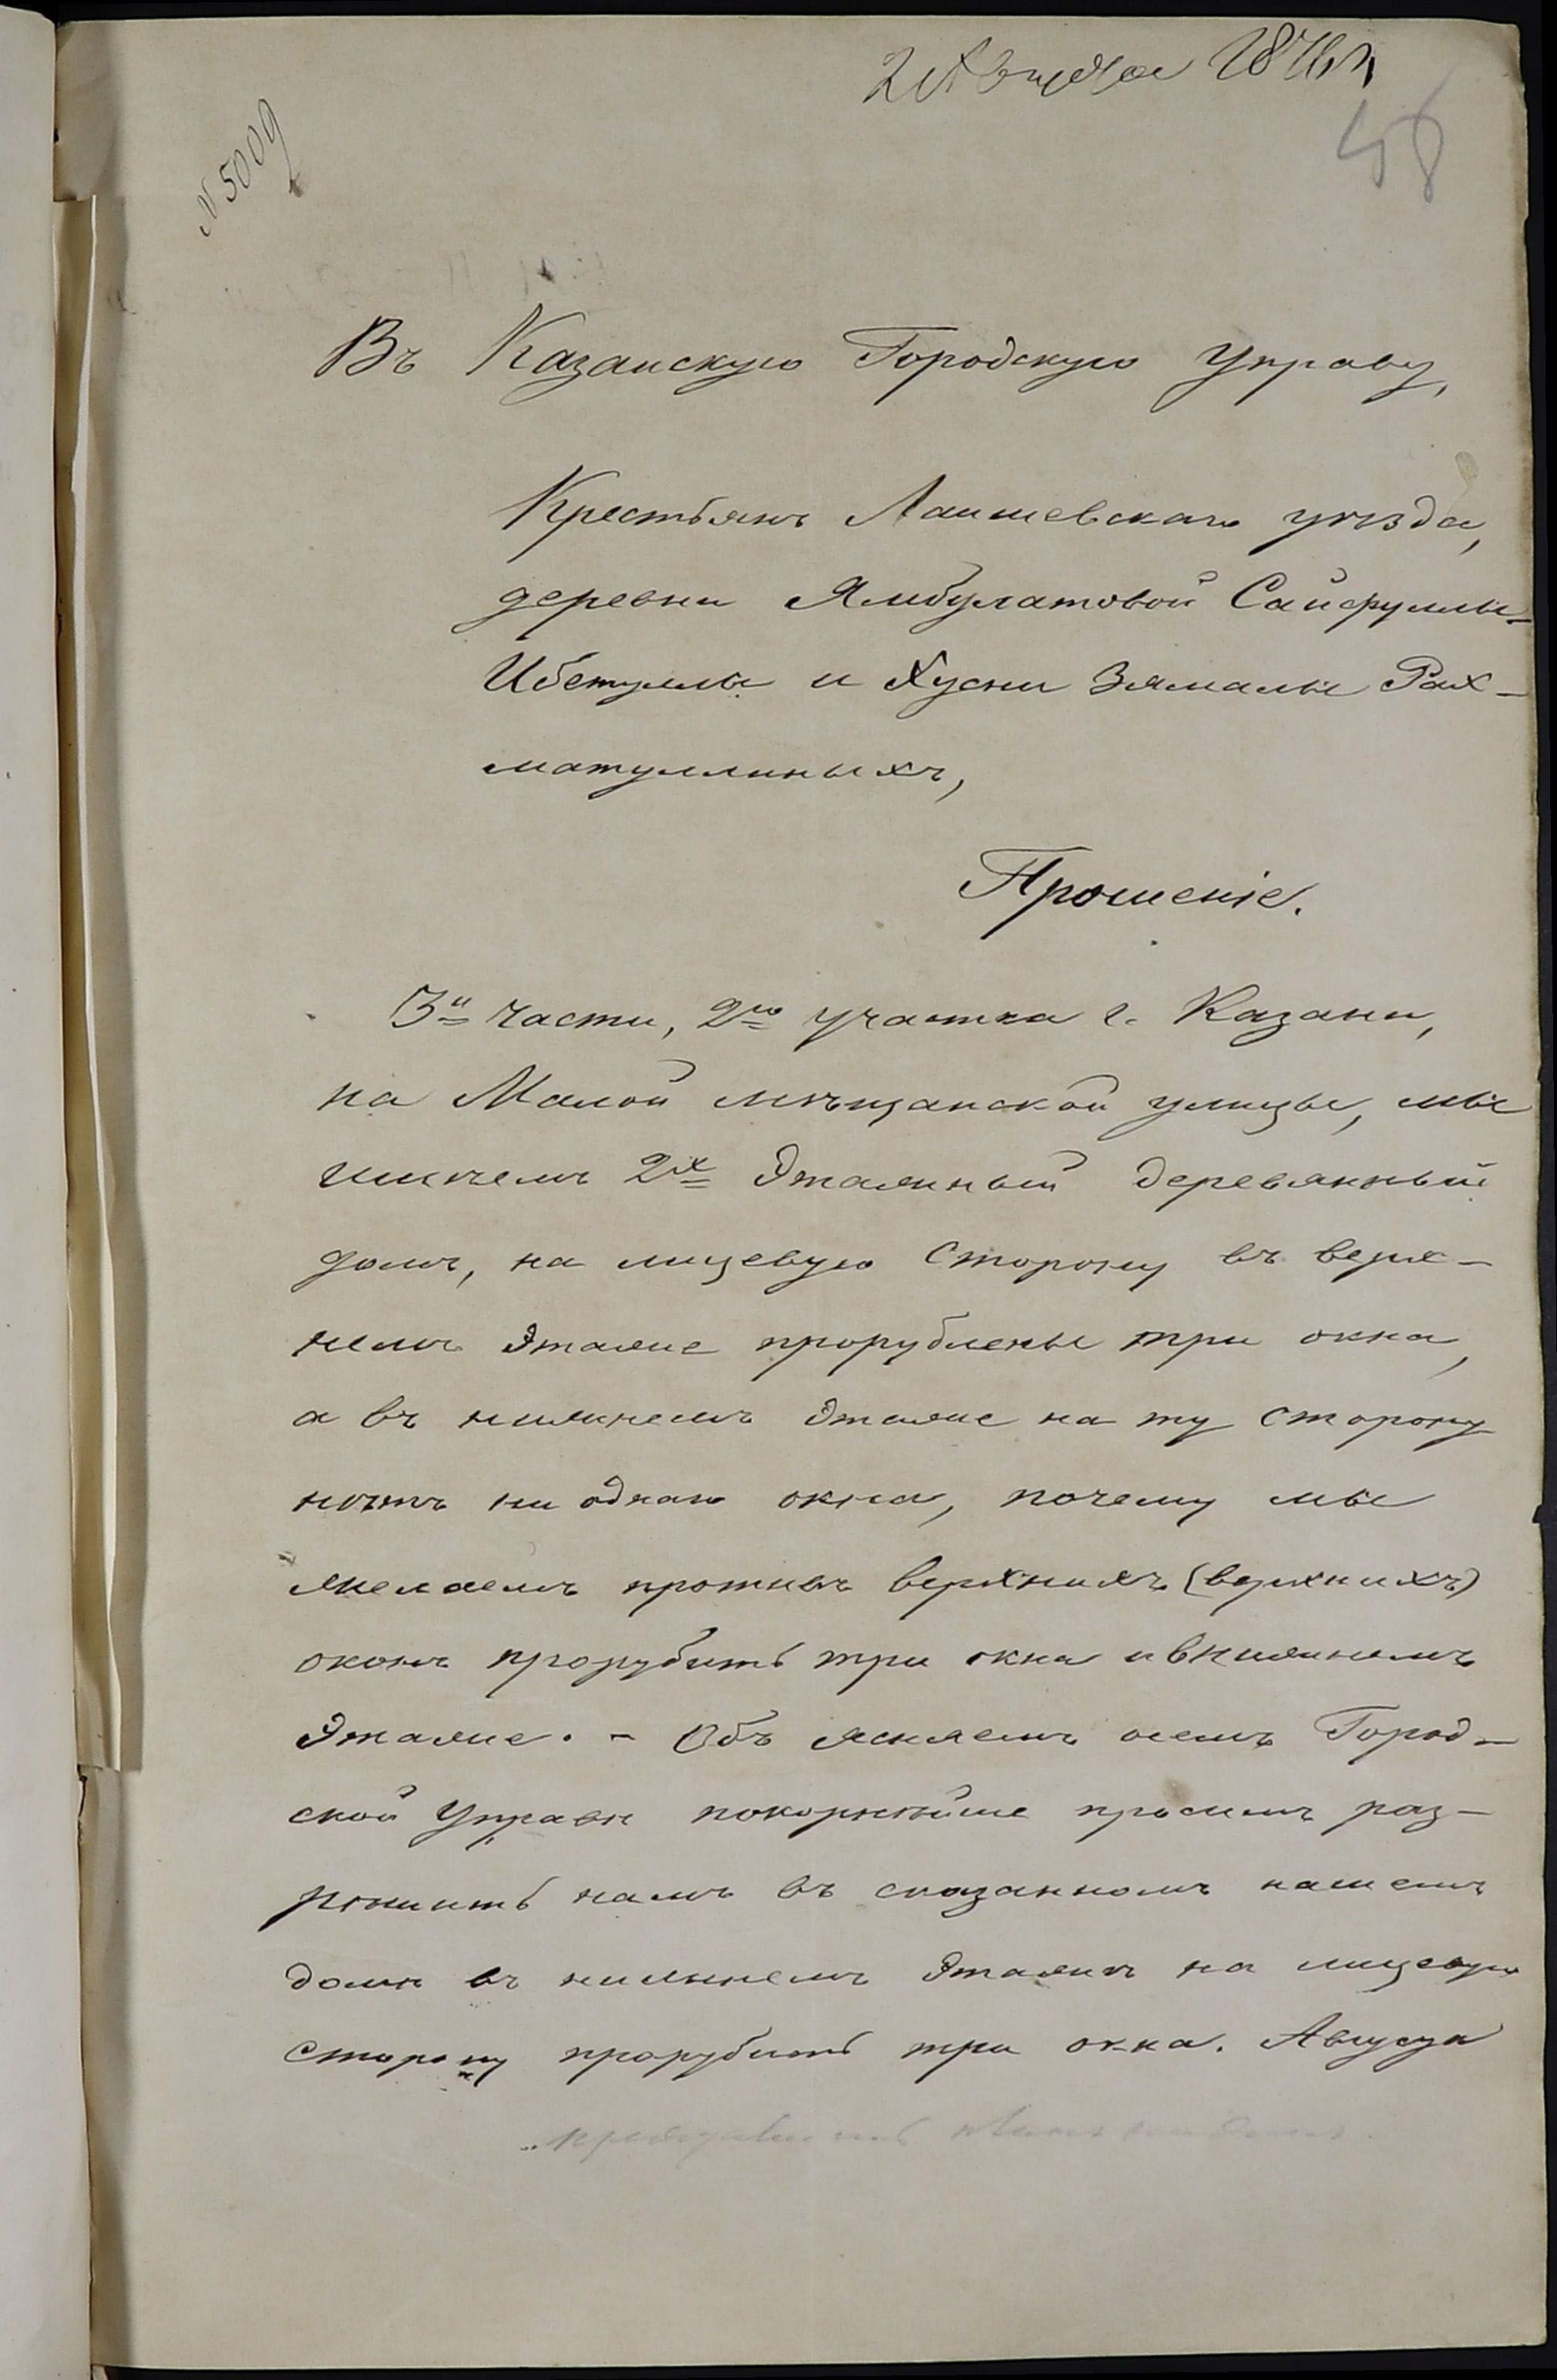 2 Августа 1876 г.
58
N 5009
Въ Казанскую Городскую Управу,
Крестьянъ Лаишевскаго уѣзда,
деревни Ямбулатовой Сайфуллы
Ибетуллы и Хусни Зямалы Рах-
матуллиныхъ,
Прошеніе.
3й части, 2го участка г. Казани,
на Малой мѣщанской улицы, мы
имѣемъ 2х Этажный деревянный
домъ, на лицевую сторону въ верх-
немъ Этаже прорублены три окна,
а въ нижнемъ Этаже на ту сторону
нѣтъ ни однаго окна, почему мы
желаемъ противъ верхнихъ (верхнихъ)
оконъ прорубить три окна и внижнемъ
Этаже. - Объ ясняемъ осемъ Город-
ской Управѣ покорнѣйше просимъ раз-
рѣшить намъ въ сказанномъ нашемъ
домѣ въ нижнемъ Этажѣ на лицевую
сторону прорубить три окна. Августа